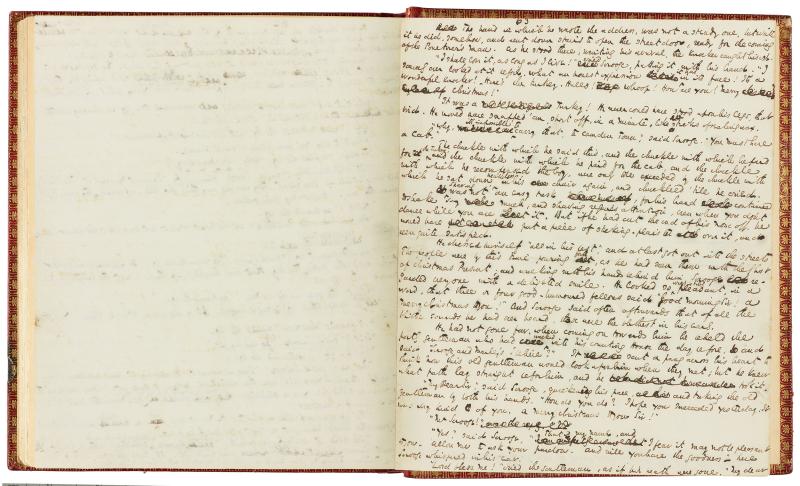 63
The hand in which he wrote the address, was not a steady one, but write
it he did, somehow, and went down stairs to open the street door, ready for the coming
of the Poulterer's man. As he stood there, waiting his arrival, the knocker caught his eye.
"I shall love it, as long as I live!" cried Scrooge, patting it with his hand. "I
scarcely ever looked at it before, what an honest expression it has in its face! It's a
wonderful knocker! Here's the turkey. Hallo! Whoop! How are you! Merry
Christmas!"
It was a Turkey! He never could have stood upon his legs, that
bird. He would have snapped 'em short off, in a minute, like sticks of sealing wax.
"Why, it's impossible to carry that, to Camden Town," said Scrooge. "You must have
a cab."
The chuckle with which he said this, and the chuckle with which he paid
for the and the chuckle with which he paid for the cab, and the chuckle
with which he recompensed the boy, were only to be exceeded by the chuckle with
which he sat down breathless in his chair again, and chuckled 'till he cried.
Shaving was not an easy task, for his hand continued
to shake very much, and shaving requires attention, even when you don't
dance while you are at it. But if he had cut the end of his nose off, he
would have put a piece of sticking-plaister over it, and
been quite satisfied.
He dressed himself "all in his best", and at last got out into the streets
The people were by this time pouring forth, as he had seen them with the Ghost
of Christmas Present; and walking with his hands behind him, Scrooge re-
garded every one with a delighted smile. He looked so pleasant, in a
word, that three or four good-humoured fellows said "Good morning Sir! A
merry Christmas to you!" And Scrooge said often afterwards that of all the
blithe sounds he had ever heard, those were the blithest in his ears.
He had not gone far, when coming on towards him he beheld the
portly gentleman who had walked into his counting house the day before, and
said "Scrooge and Marley's I believe?" It sent a pang across his heart to
think how this old gentleman would look upon him when they met; but he knew
what path lay straight before him, and he took it.
"My dear Sir," said Scrooge, quickening his pace, and taking the old
gentleman by both his hands. "How do you do? I hope you succeeded yesterday. It
was very kind of you. A merry Christmas to you Sir!"
"Mr Scrooge?"
"Yes," said Scrooge. "That is my name, and I fear it may not be pleasant
to you. Allow me to ask your pardon. And will you have the goodness" — here
Scrooge whispered in his ear.
"Lord bless me!" cried the gentleman, as if his breath were gone. "My dear